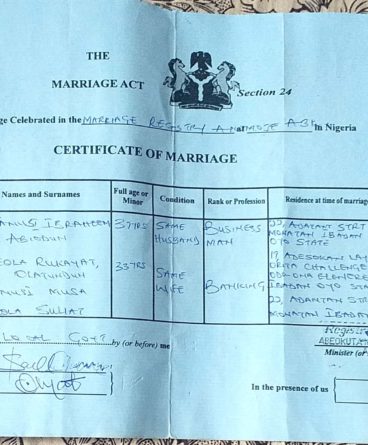 THE
MARRIAGE ACT
Section 24
ge Celebrated in the MARRIAGE REGISTRY at In Nigeria
CERTIFICATE OF MARRIAGE
Names and Surnames
Full age or Minor
Condition
Rank or Profession
Residence at time of marriage
ANUSI IBRAHEEM
ABIODUN
37YRS
SAME
HUSBAND
BUSINESS
MAN
22, STRT
MONATAN IBADAN
OYO STATE
OLA RUKAYAT,
OLATUNDUN
33YRS
SAME
WIFE
BANKING
17, ADESOKAN LA
CHALLENGE
IBADAN OYO STA
ANUSI MUSA
OLA SULIAT
22, STR
MONATAN IBADAN
LOCAL GOVT by (or before) me
Registr
ABEOKUTA
Minister (or
In the presence of us